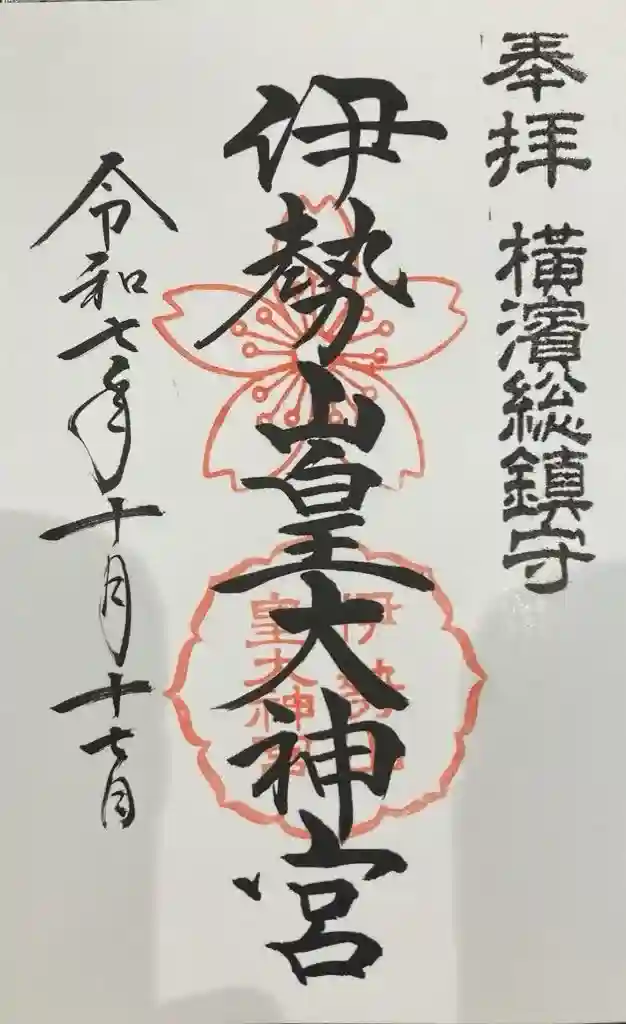 奉拝 横濱総鎮守
伊勢山皇大神宮
伊勢山
皇大神宮
令和七年十月十七日